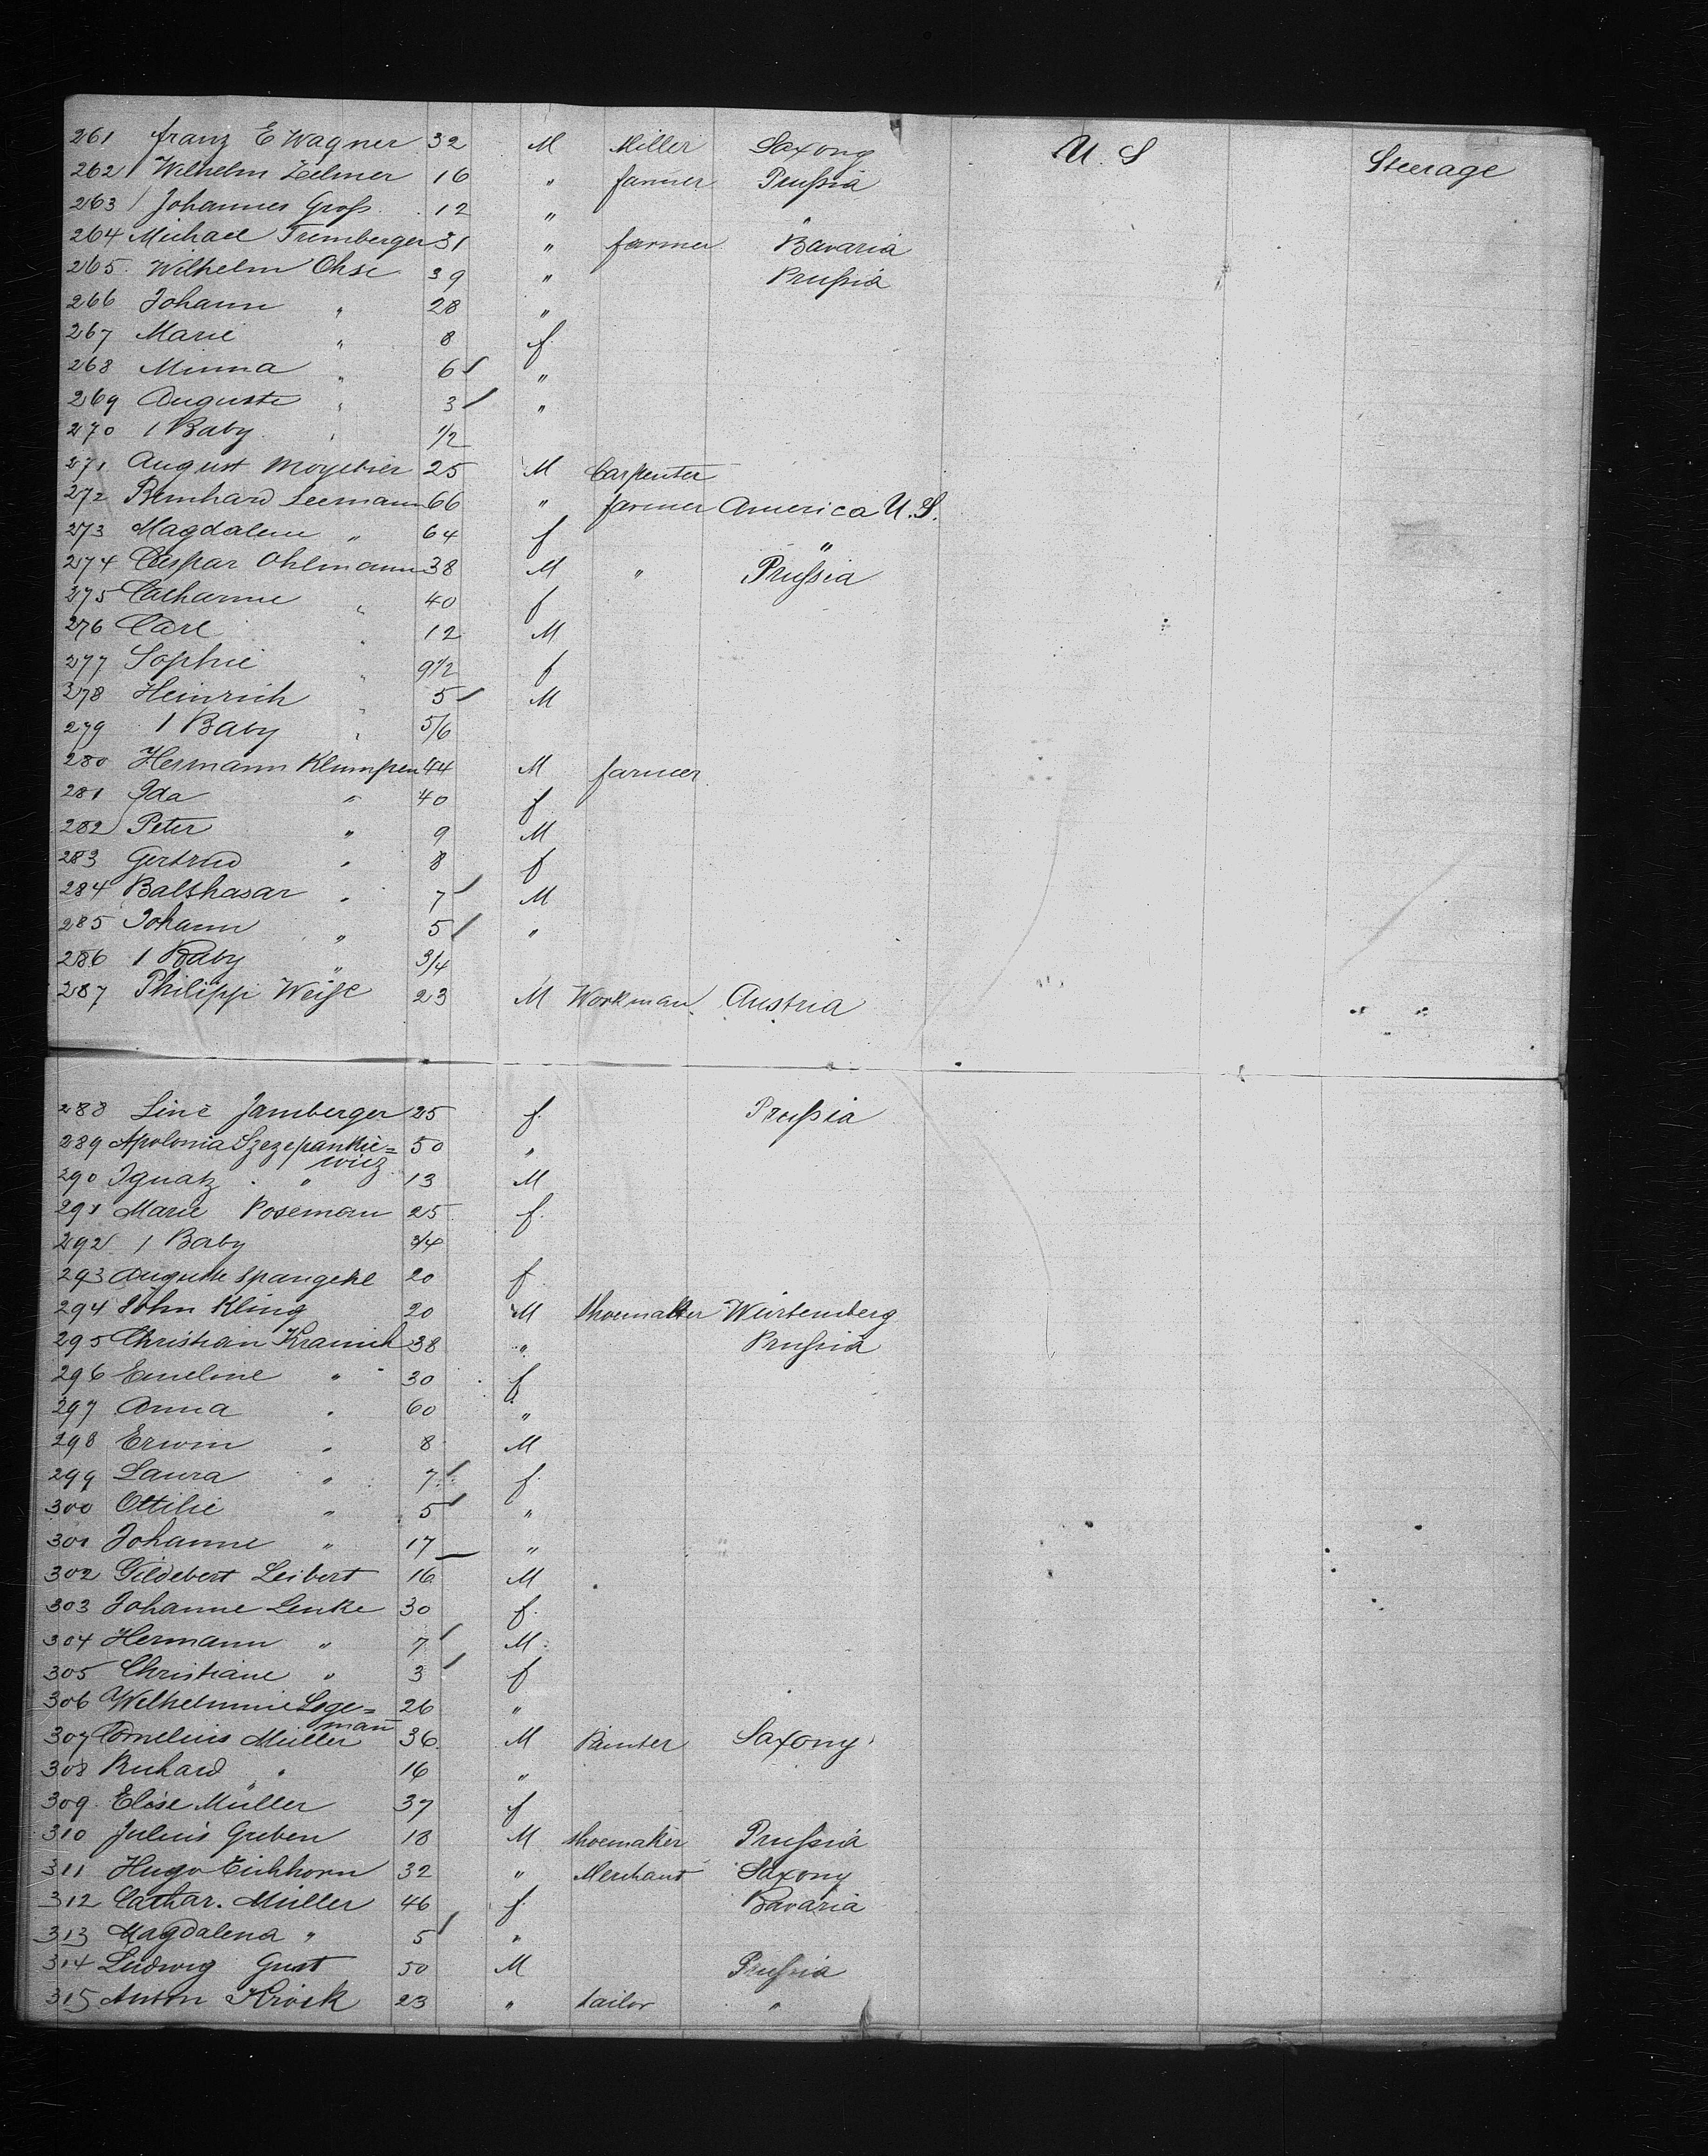 261 Franz E Wagner 32 M Miller Saxony U. S Steerage
262 Wilhelm Zelmer 16 " farmer Prußia
263 Johannes Groß 12 " "
264 Michael Trimberger 31 " farmer Bavaria
265 Wilhelm Ohse 39 " Prußia
266 Johann " 28 "
267 Marie " 8 f
268 Minna " 6 "
269 Auguste " 3 "
270 1 Baby " 1/2
271 August 25 M Carpenter
272 Bernhard Seemann 66 " farmer America U. S.
273 Magdalene " 64 f "
274 Caspar Ohlmann 38 M " Prußia
275 Catharine " 40 f
276 Carl " 12 M
277 Sophie " 9 1/2 f
278 Heinrich " 5 M
279 1 Baby " 5/6
280 Hermann Klumpen 44 M farmer
281 Ida " 40 f
282 Peter " 9 M
283 Gertrud " 8 f
284 Balthasar " 7 M
285 Johann " 5 "
286 1 Baby " 3/4
287 Philipp Weiße 23 M Workman Austria
288 Line Jamberger 25 f. Prußia
289 Apolonia Szczepankie= 50 "
wicz
290 Ignatz " 13 M
291 Marie Poseman 25 f.
292 1 Baby 3/4
293 Auguste Spangehl 20 f
294 John Kling 20 M Shoemaker Würtemberg
295 Christian Kranich 38 " Prußia
296 Emeline " 30 f
297 Anna " 60 "
298 Erwin " 8 M
299 Laura " 7 f
300 Ottilie " 5 "
301 Johanne " 17 "
302 Gildebert Leibert 16 M
303 Johanne Lenke 30 f.
304 Hermann " 7 M
305 Christiane " 3 f
306 Wilhelmine Loge= 26 "
man
307 Cornelius Müller 36 M Painter Saxony
308 Richard " 16 "
309 Elise Müller 37 f
310 Julius Greben 18 M shoemaker Prußia
311 Hugo Eichhorn 32 " Merchant Saxony
312 Cathar. Müller 46 f Bavaria
313 Magdalena " 5 "
314 Ludwig Gust 50 M Prußia
315 Anton Krosk 23 " tailor "